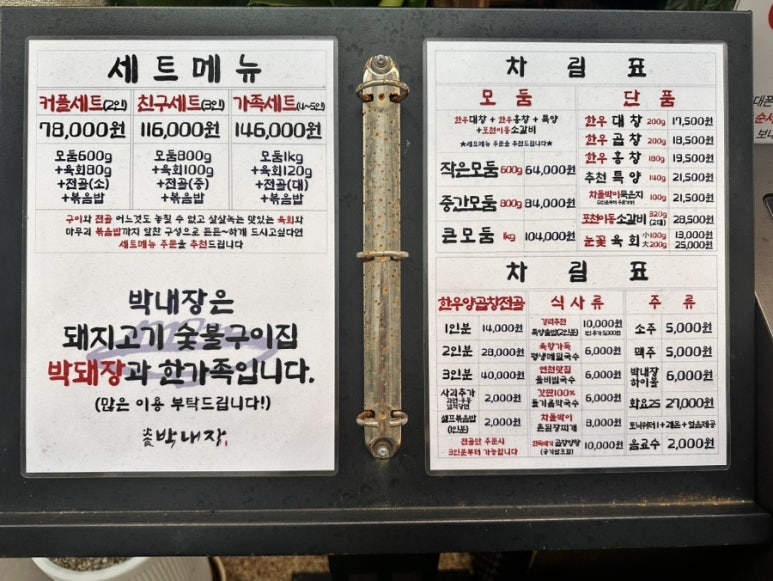 세트메뉴
커플세트(2인) 친구세트(3인) 가족세트(4~5인)
78,000원 116,000원 146,000원
모둠600g 모둠800g 모둠1kg
+육회80g +육회100g +육회120g
+전골(소) +전골(중) +전골(대)
+볶음밥 +볶음밥 +볶음밥
구이와 전골 어느것도 놓칠 수 없고 살살녹는 맛있는 육회와
마무리 볶음밥까지 알찬 구성으로 든든~하게 드시고싶다면
세트메뉴 주문을 추천드립니다
박내장은
돼지고기 숯불구이집
박돼장과 한가족입니다.
(많은 이용 부탁드립니다!)
박내장
차림표
모둠
한우대창 + 한우홍창 + 특양
+포천이동소갈비
★세트메뉴 주문을 추천드립니다★
작은모둠 600g 64,000원
중간모둠 800g 84,000원
큰모둠 1kg 104,000원
단품
한우 대창 200g 17,500원
한우 곱창 200g 18,500원
한우 홍창 180g 19,500원
추천 특양 140g 21,500원
차돌박이묵은지 100g 21,500원
포천이동소갈비 320g (2대) 28,500원
눈꽃 육회 小100g 13,000원
大200g 25,000원
차림표
한우양곱창전골
1인분 14,000원
2인분 28,000원
3인분 40,000원
사리추가 2,000원
셀프볶음밥 (1인분) 2,000원
전골만 주문시
3인분부터 가능합니다
식사류
강력추천
특양솥밥(2인분) 10,000원
육향가득
평냉메밀국수 6,000원
연천맛집
물비빔국수 6,000원
갓판100%
들기름막국수 6,000원
차돌박이
된장찌개 8,000원
곱창쌈장
(공기밥포함) 10,000원
주류
소주 5,000원
맥주 5,000원
박내장
하이볼 6,000원
화요25 27,000원
토닉워터1+레몬+얼음제공
음료수 2,000원